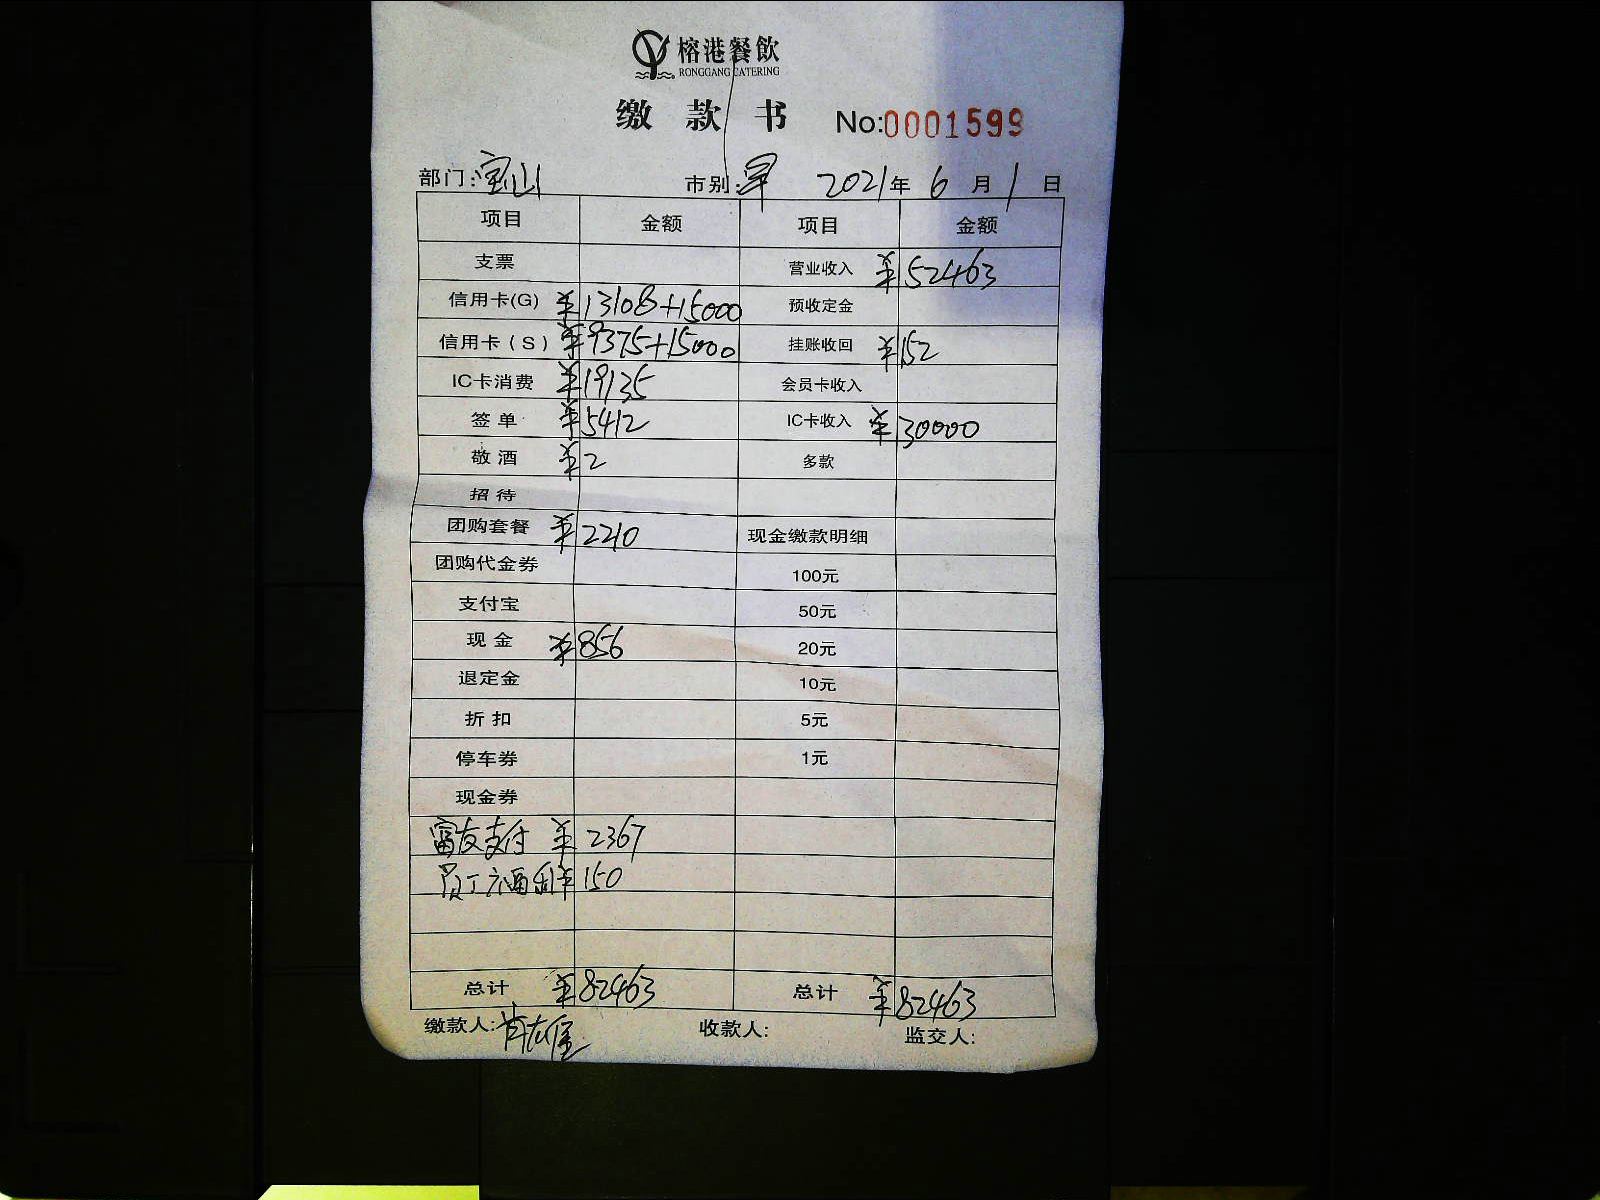 榕港餐飲
RONGGANG CATERING
缴款书 No:0001599
部门:宝山 市别:早 2021年6月1日
项目 金额 项目 金额
支票 营业收入 ¥52463
信用卡(G) ¥13108+15000 预收定金
信用卡(S) ¥9375+15000 挂账收回 ¥152
IC卡消费 ¥19135 会员卡收入
签单 ¥5412 IC卡收入 ¥30000
敬酒 ¥2 多款
招待
团购套餐 ¥2210 现金缴款明细
团购代金券 100元
支付宝 50元
现金 ¥856 20元
退定金 10元
折扣 5元
停车券 1元
现金券
富友支付 ¥2367
员工福利 ¥150
总计 ¥82463 总计 ¥82463
缴款人: 收款人: 监交人: